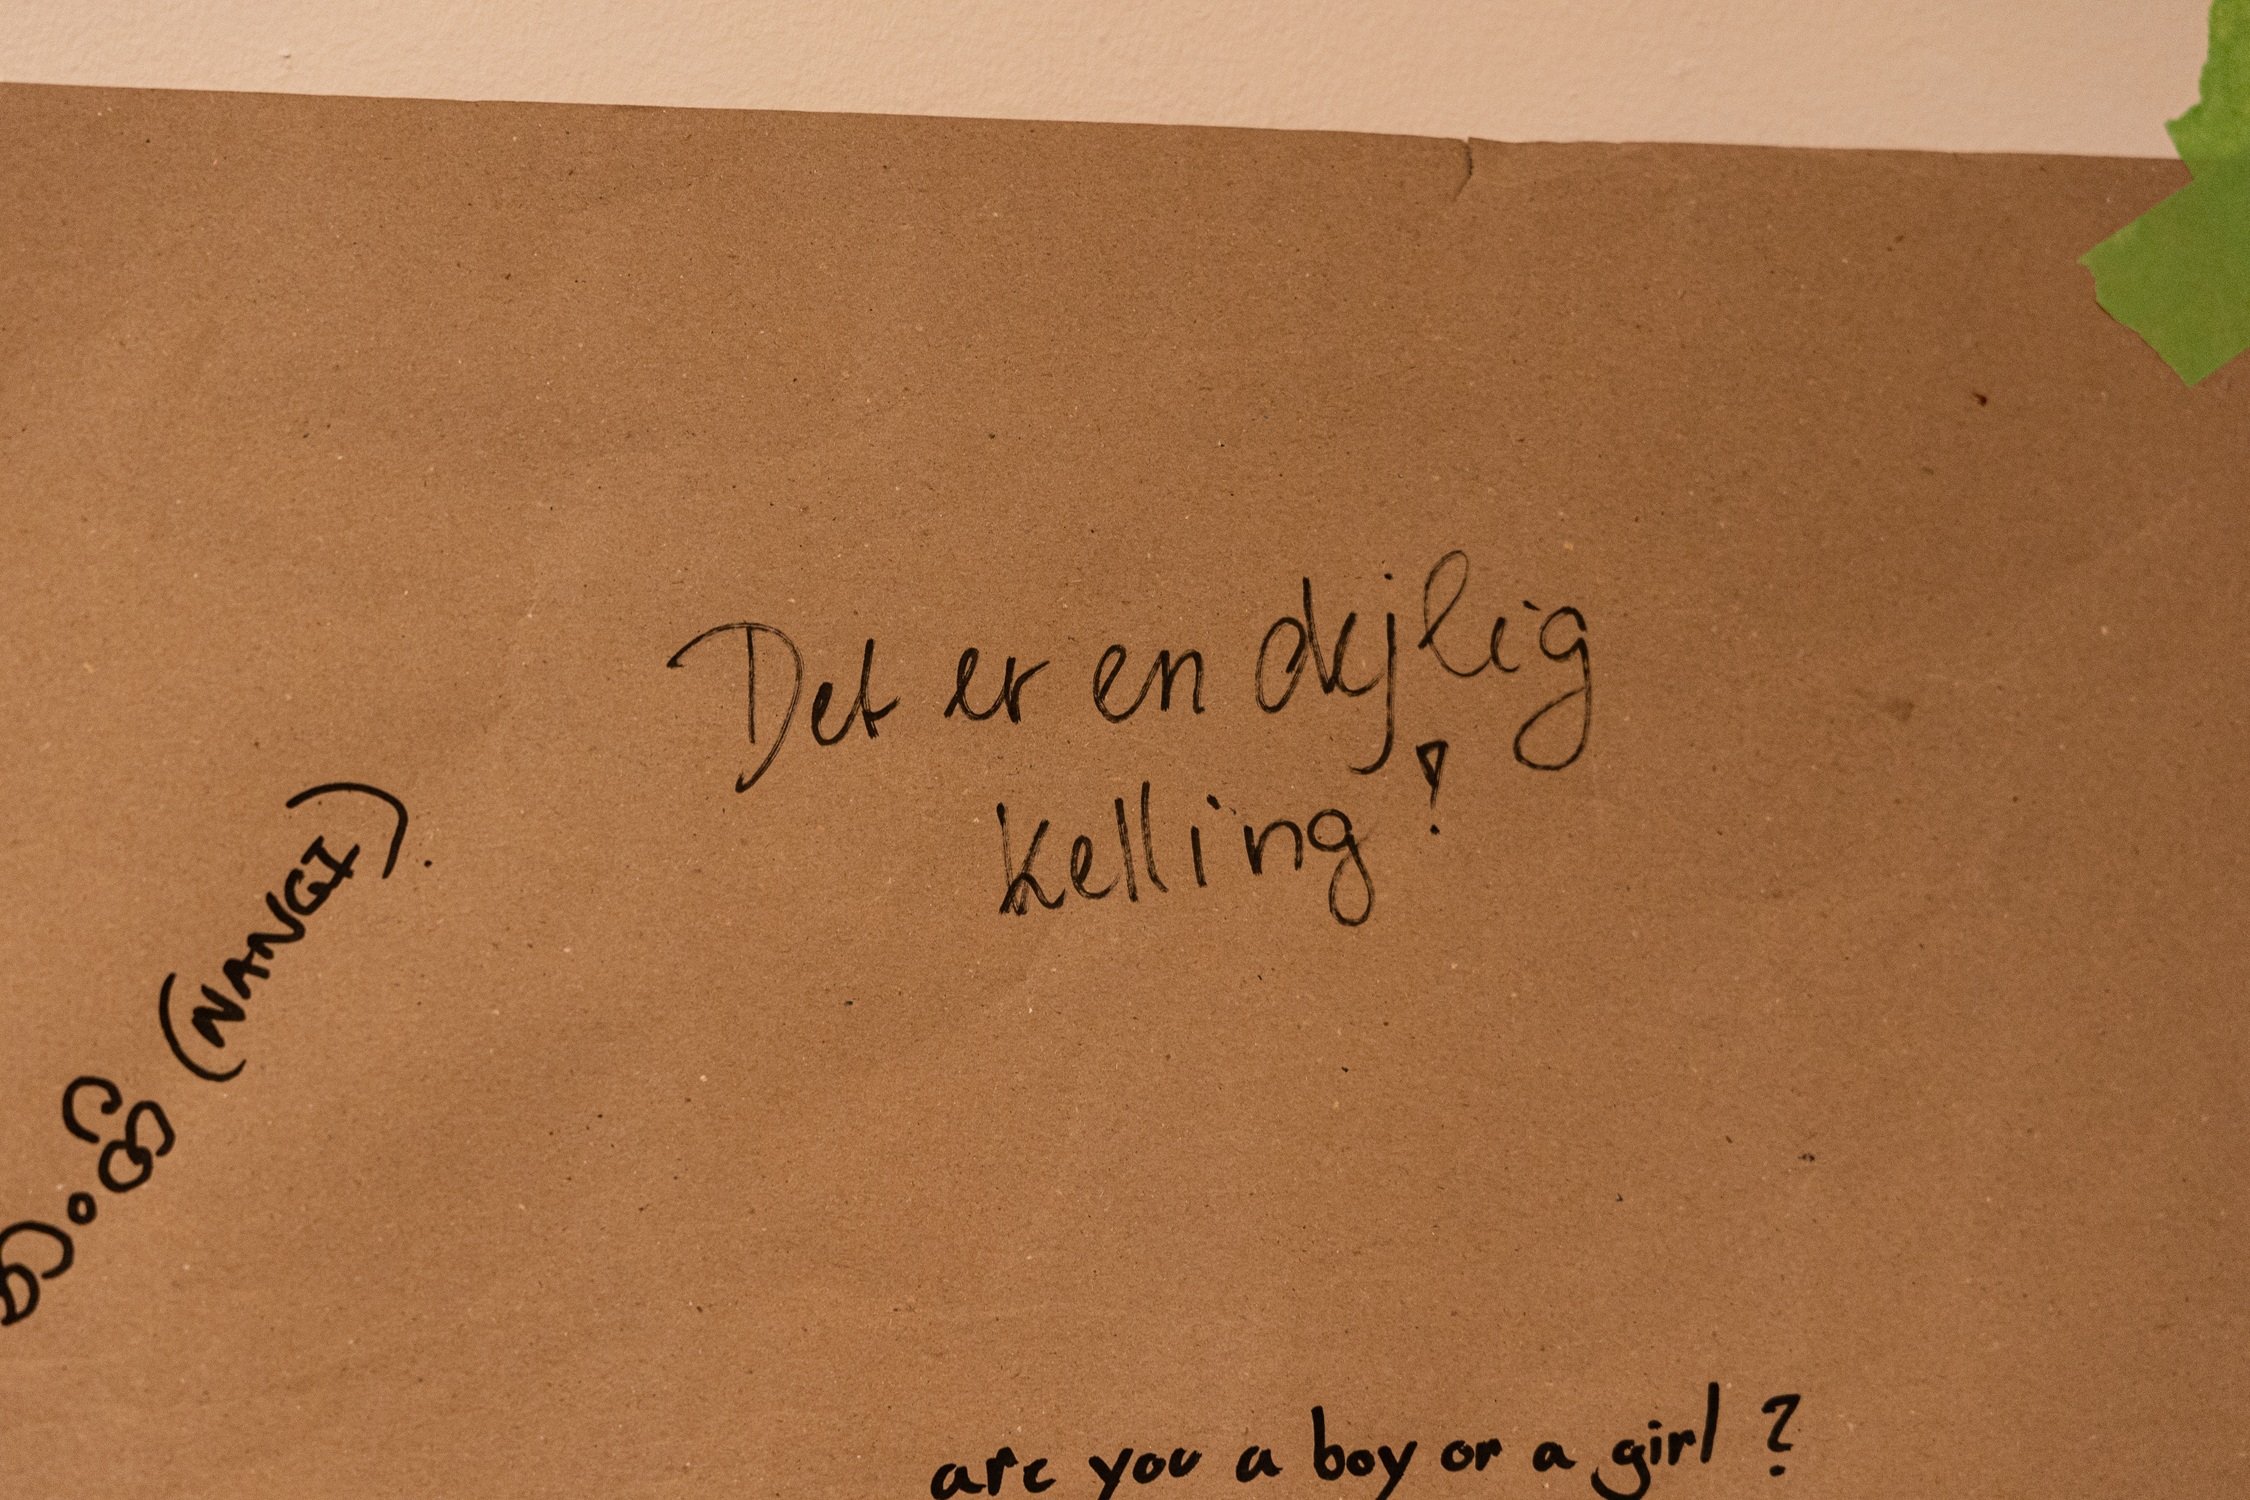 Det er en dejlig
kelling!
නංගි (NANGI).
are you a boy or a girl?